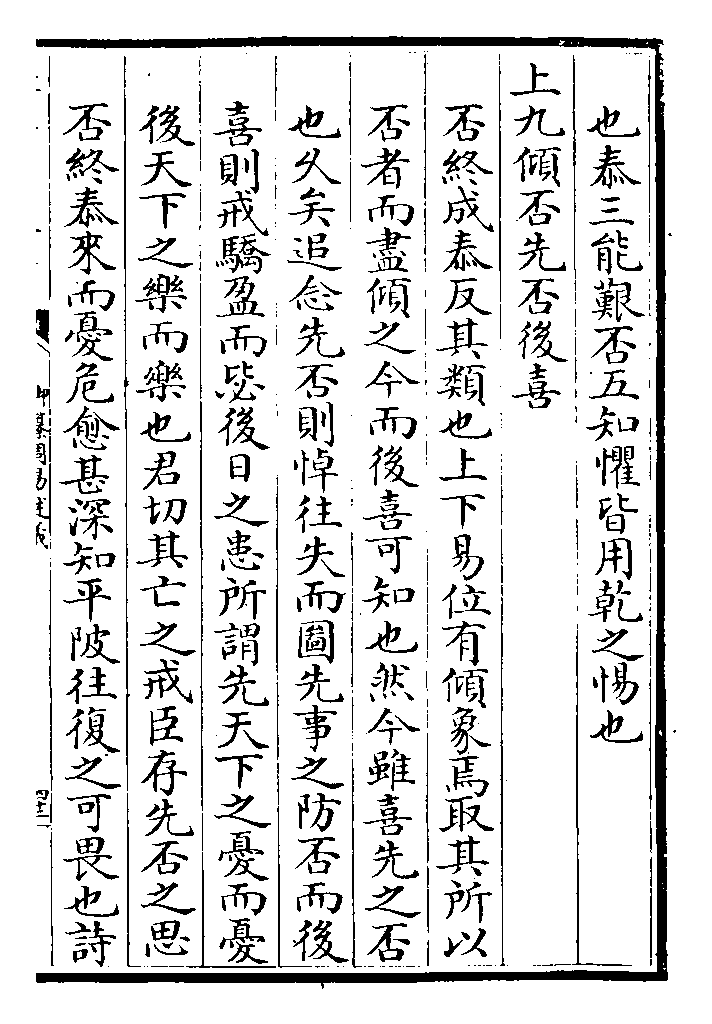 也泰三能艱否五知懼皆用乾之惕也
上九傾否先否後喜
否終成泰反其類也上下易位有傾象焉取其所以
否者而盡傾之今而後喜可知也然今雖喜先之否
也久矣追念先否則悼往失而圖先事之防否而後
喜則戒驕盈而毖後日之患所謂先天下之憂而憂
後天下之樂而樂也君切其亡之戒臣存先否之思
否終泰來而憂危愈甚深知平陂往復之可畏也詩
御纂周易述義